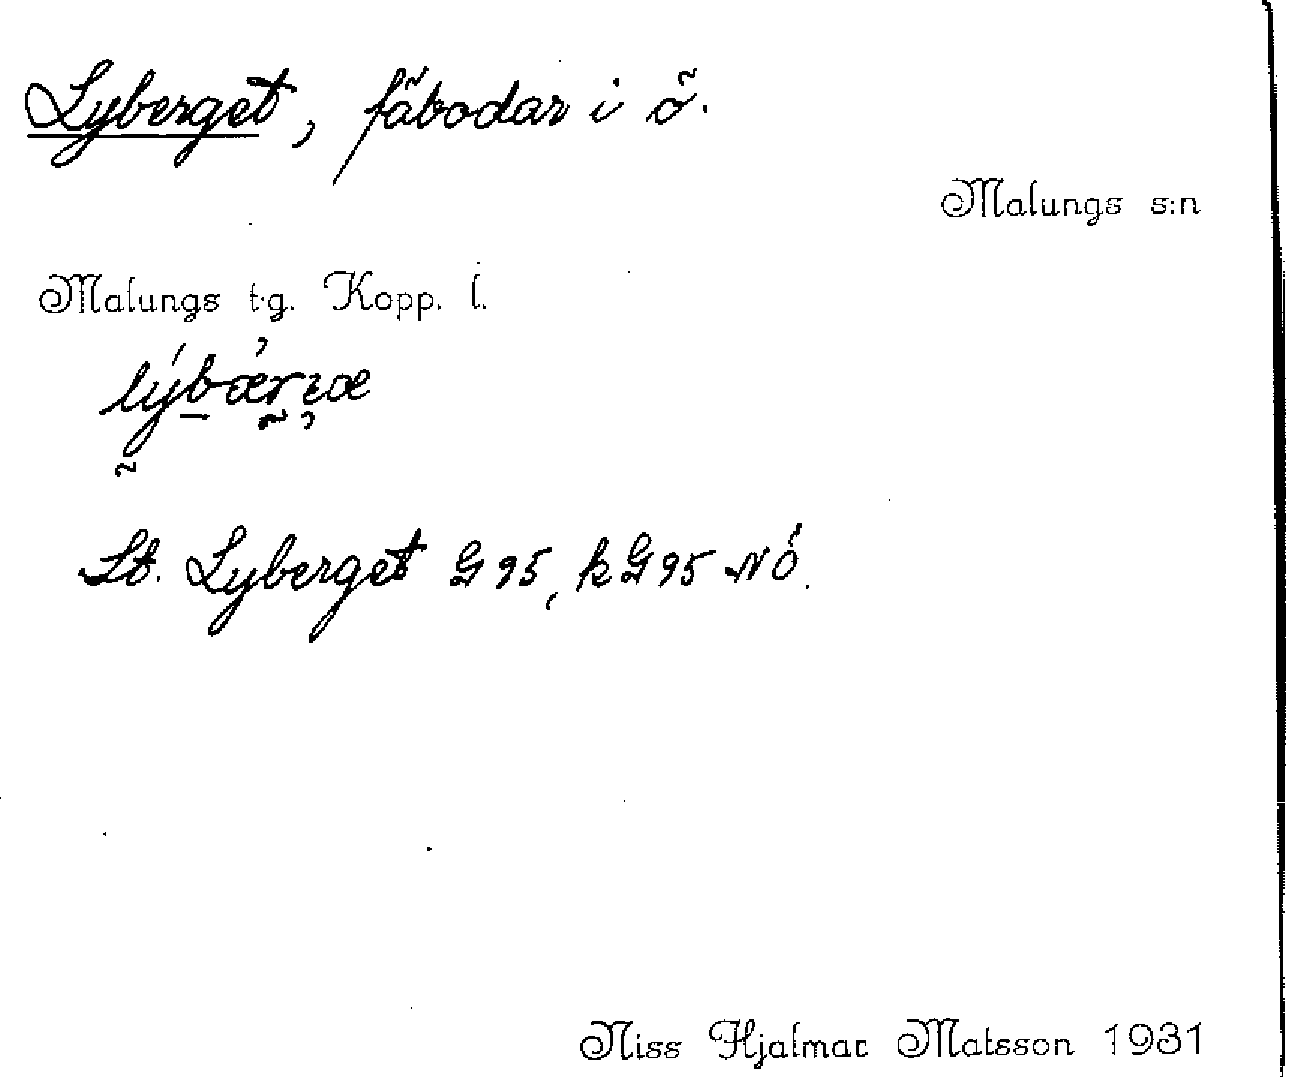 Lyberget, fäbodar i ö.
Malungs s:n
Malungs t.g. Kopp. l.
St. Lyberget G 95, k G 95 NÖ.
Niss Hjalmar Matsson 1931